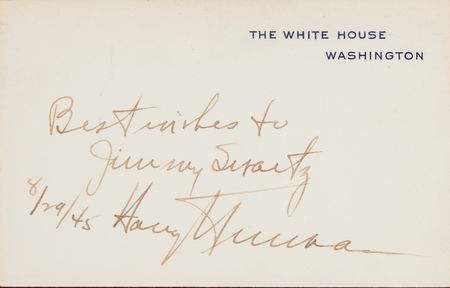 THE WHITE HOUSE
WASHINGTON
Best wishes to
Jimmy Swartz
8/29/45 Harry Truman